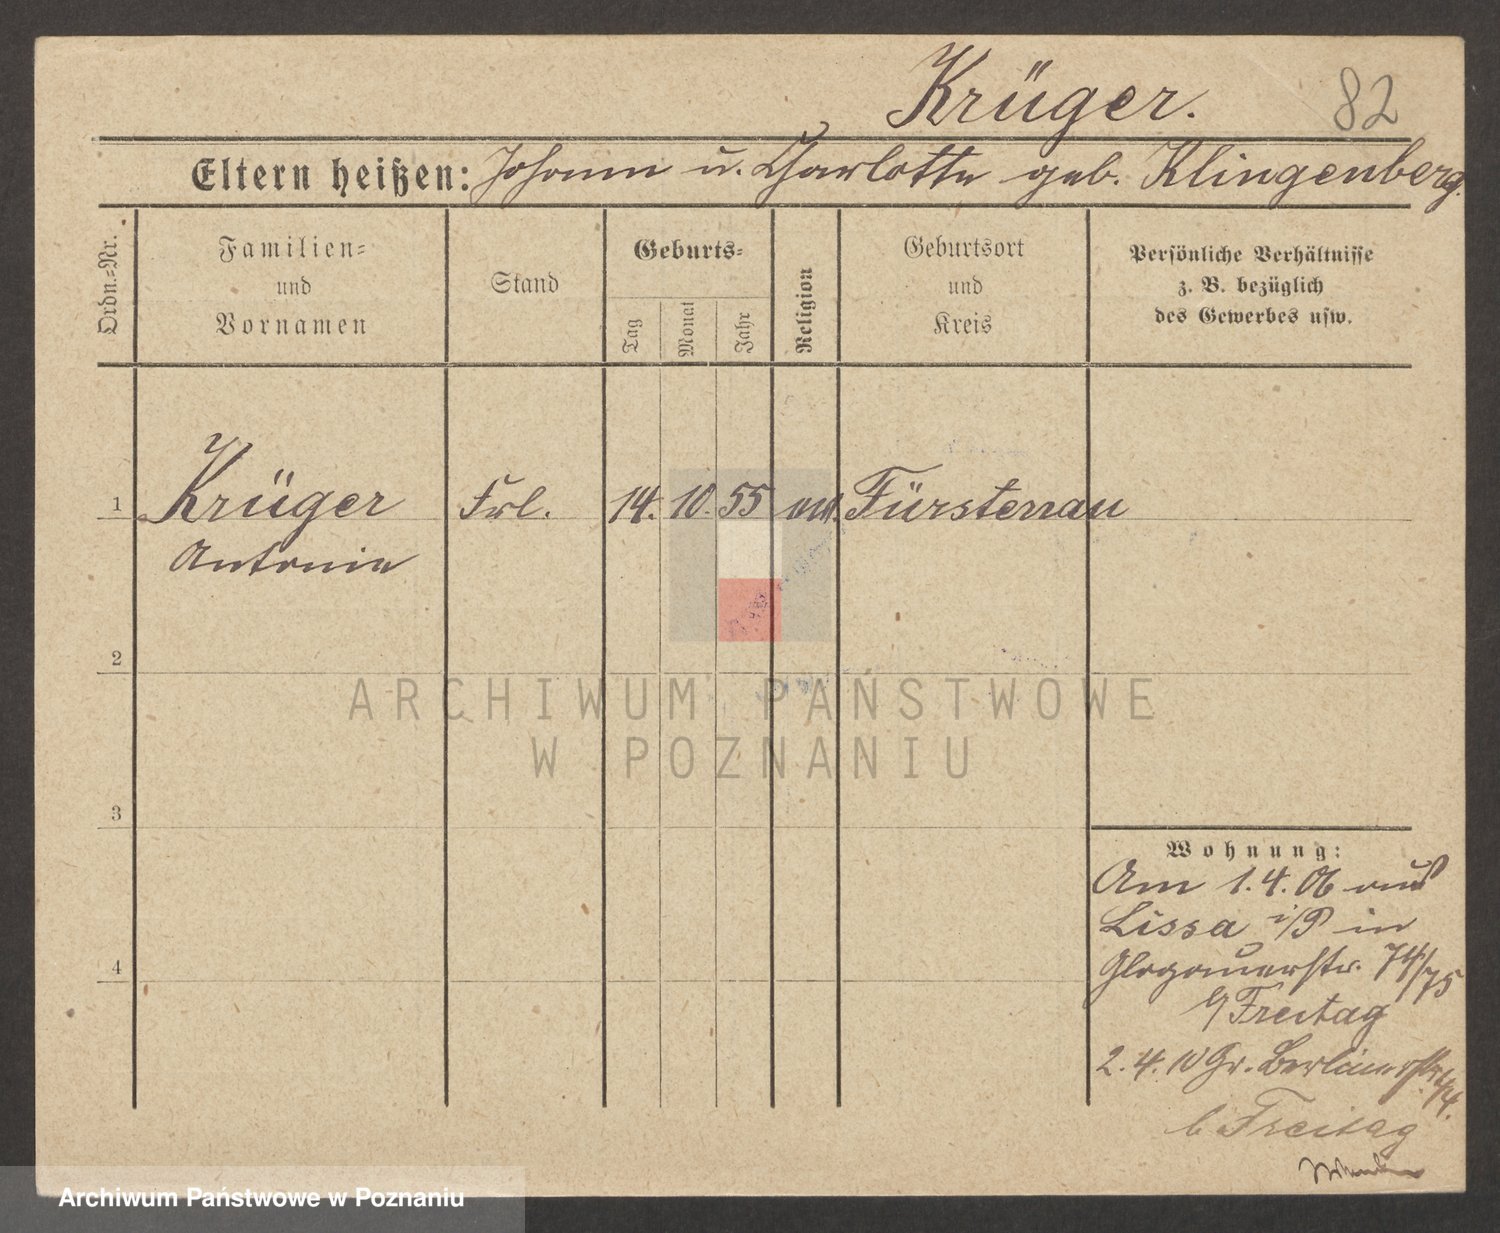 Krüger. 82
Eltern heißen: Johann u. Charlotte geb. Klingenberg.
Ordn.-Nr.
Familien-
und
Vornamen
Stand
Geburts-
Tag
Monat
Jahr
Religion
Geburtsort
und
Kreis
Persönliche Verhältnisse
z. B. bezüglich
des Gewerbes usw.
1 Krüger Frl. 14. 10. 55 Fürstenau
Antonie
2
ARCHIWUM PAŃSTWOWE
W POZNANIU
3
Wohnung:
Am 1. 4. 06 aus
Lissa i/P in
4 Glogauerstr. 74/75
b/Freitag
2. 4. 10 Gr. Berlinerstr.
b Freitag
Archiwum Państwowe w Poznaniu